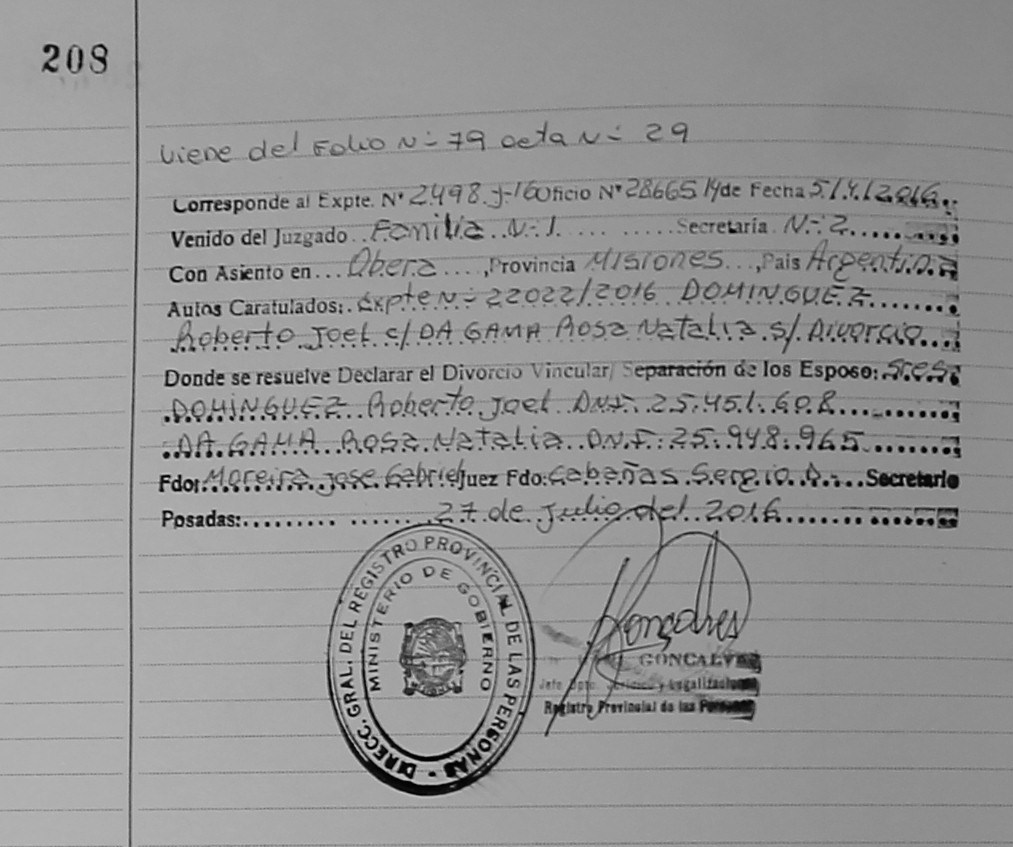 208
Viene del Folio N- 79 acta N- 29
Corresponde al Expte. N° 2498.J-160ficio N° 28665/4 de Fecha 5/4/2016
Venido del Juzgado..Familia..N-1. ........Secretaría. N-2.........
Con Asiento en...Oberá....,Provincia Misiones...,Pais Argentina
Autos Caratulados:.Expte N- 22022/2016 DOMINGUEZ........
Roberto Joel c/ DA GAMA Rosa Natalia s/ Divorcio....
Donde se resuelve Declarar el Divorcio Vincular/ Separación de los Esposo: Sres
DOMINGUEZ Roberto Joel DNI. 25.451.608..........
DA GAMA Rosa Natalia DNI: 25.948.965.........
Fdo: Moreira Jose Gabriel Juez Fdo: Cabañas Sergio A....Secretario
Posadas:......... .......27 de Julio del 2016..............
DIRECC. GRAL. DEL REGISTRO PROVINCIAL DE LAS PERSONAS -
MINISTERIO DE GOBIERNO
GONCALVES
Jefe Dpto. y Legalizaciones
Registro Provincial de las Personas